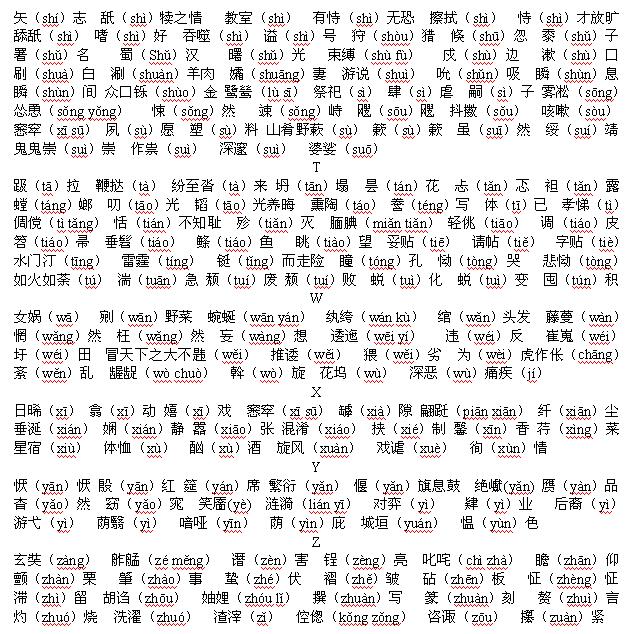 矢（shǐ）志 舐（shì）犊之情 教室（shì） 有恃（shì）无恐 擦拭（shì） 恃（shì）才放旷
舔舐（shì） 嗜（shì）好 吞噬（shì） 谥（shì）号 狩（shòu）猎 倏（shū）忽 黍（shǔ）子
署（shǔ）名 蜀（Shǔ）汉 曙（shǔ）光 束缚（shù fù） 戍（shù）边 漱（shù）口
刷（shuà）白 涮（shuàn）羊肉 孀（shuāng）妻 游说（shuì） 吮（shǔn）吸 瞬（shùn）息
瞬（shùn）间 众口铄（shuò）金 鹭鸶（lù sī） 祭祀（sì） 肆（sì）虐 嗣（sì）子 雾凇（sōng）
怂恿（sǒng yǒng） 悚（sǒng）然 竦（sǒng）峙 飕（sōu）飕 抖擞（sǒu） 咳嗽（sòu）
窸窣（xī sū） 夙（sù）愿 塑（sù）料 山肴野蔌（sù） 簌（sù）簌 虽（suī）然 绥（suí）靖
鬼鬼祟（suì）祟 作祟（suì） 深邃（suì） 婆娑（suō）
T
趿（tā）拉 鞭挞（tà） 纷至沓（tà）来 坍（tān）塌 昙（tán）花 忐（tǎn）忑 袒（tǎn）露
螳（táng）螂 叨（tāo）光 韬（tāo）光养晦 熏陶（táo） 誊（téng）写 体（tī）己 孝悌（tì）
倜傥（tì tǎng） 恬（tián）不知耻 殄（tiǎn）灭 腼腆（miǎn tiǎn） 轻佻（tiāo） 调（tiáo）皮
笤（tiáo）帚 垂髫（tiáo） 鲦（tiáo）鱼 眺（tiào）望 妥贴（tiē） 请帖（tiě） 字贴（tiè）
水门汀（tīng） 雷霆（tíng） 铤（tǐng）而走险 瞳（tóng）孔 恸（tòng）哭 悲恸（tòng）
如火如荼（tú） 湍（tuān）急 颓（tuí）废 颓（tuí）败 蜕（tuì）化 蜕（tuì）变 囤（tún）积
W
女娲（wā） 剜（wān）野菜 蜿蜒（wān yán） 纨绔（wán kù） 绾（wǎn）头发 藤蔓（wàn）
惘（wǎng）然 枉（wǎng）然 妄（wàng）想 逶迤（wēi yí） 违（wéi）反 崔嵬（wéi）
圩（wéi）田 冒天下之大不韪（wěi） 推诿（wěi） 猥（wěi）劣 为（wèi）虎作伥（chāng）
紊（wěn）乱 龌龊（wò chuò） 斡（wò）旋 花坞（wù） 深恶（wù）痛疾（jí）
X
日晞（xī） 翕（xī）动 嬉（xī）戏 窸窣（xī sū） 罅（xià）隙 翩跹（piān xiān） 纤（xiān）尘
垂涎（xián） 娴（xián）静 嚣（xiāo）张 混淆（xiáo） 挟（xié）制 馨（xīn）香 荇（xìng）菜
星宿（xiù） 体恤（xù） 酗（xù）酒 旋风（xuàn） 戏谑（xuè） 徇（xùn）情
Y
恹（yān）恹 殷（yān）红 筵（yán）席 繁衍（yǎn） 偃（yǎn）旗息鼓 绝巘(yǎn) 赝（yàn）品
杳（yǎo）然 窈（yǎo）窕 笑靥(yè) 涟漪（lián yī） 对弈（yì） 肄（yì）业 后裔（yì）
游弋（yì） 荫翳（yì） 喑哑（yīn） 荫（yìn）庇 城垣（yuán） 愠（yùn）色
Z
玄奘（zàng） 舴艋（zé měng） 谮（zèn）害 锃（zèng）亮 叱咤（chì zhà） 瞻（zhān）仰
颤（zhàn）栗 肇（zhào）事 蛰（zhé）伏 褶（zhě）皱 砧（zhēn）板 怔（zhèng）怔
滞（zhì）留 胡诌（zhōu） 妯娌（zhóu lǐ） 撰（zhuàn）写 篆（zhuàn）刻 赘（zhuì）言
灼（zhuó）烧 洗濯（zhuó） 渣滓（zǐ） 倥偬（kǒng zǒng） 咨诹（zōu） 攥（zuàn）紧